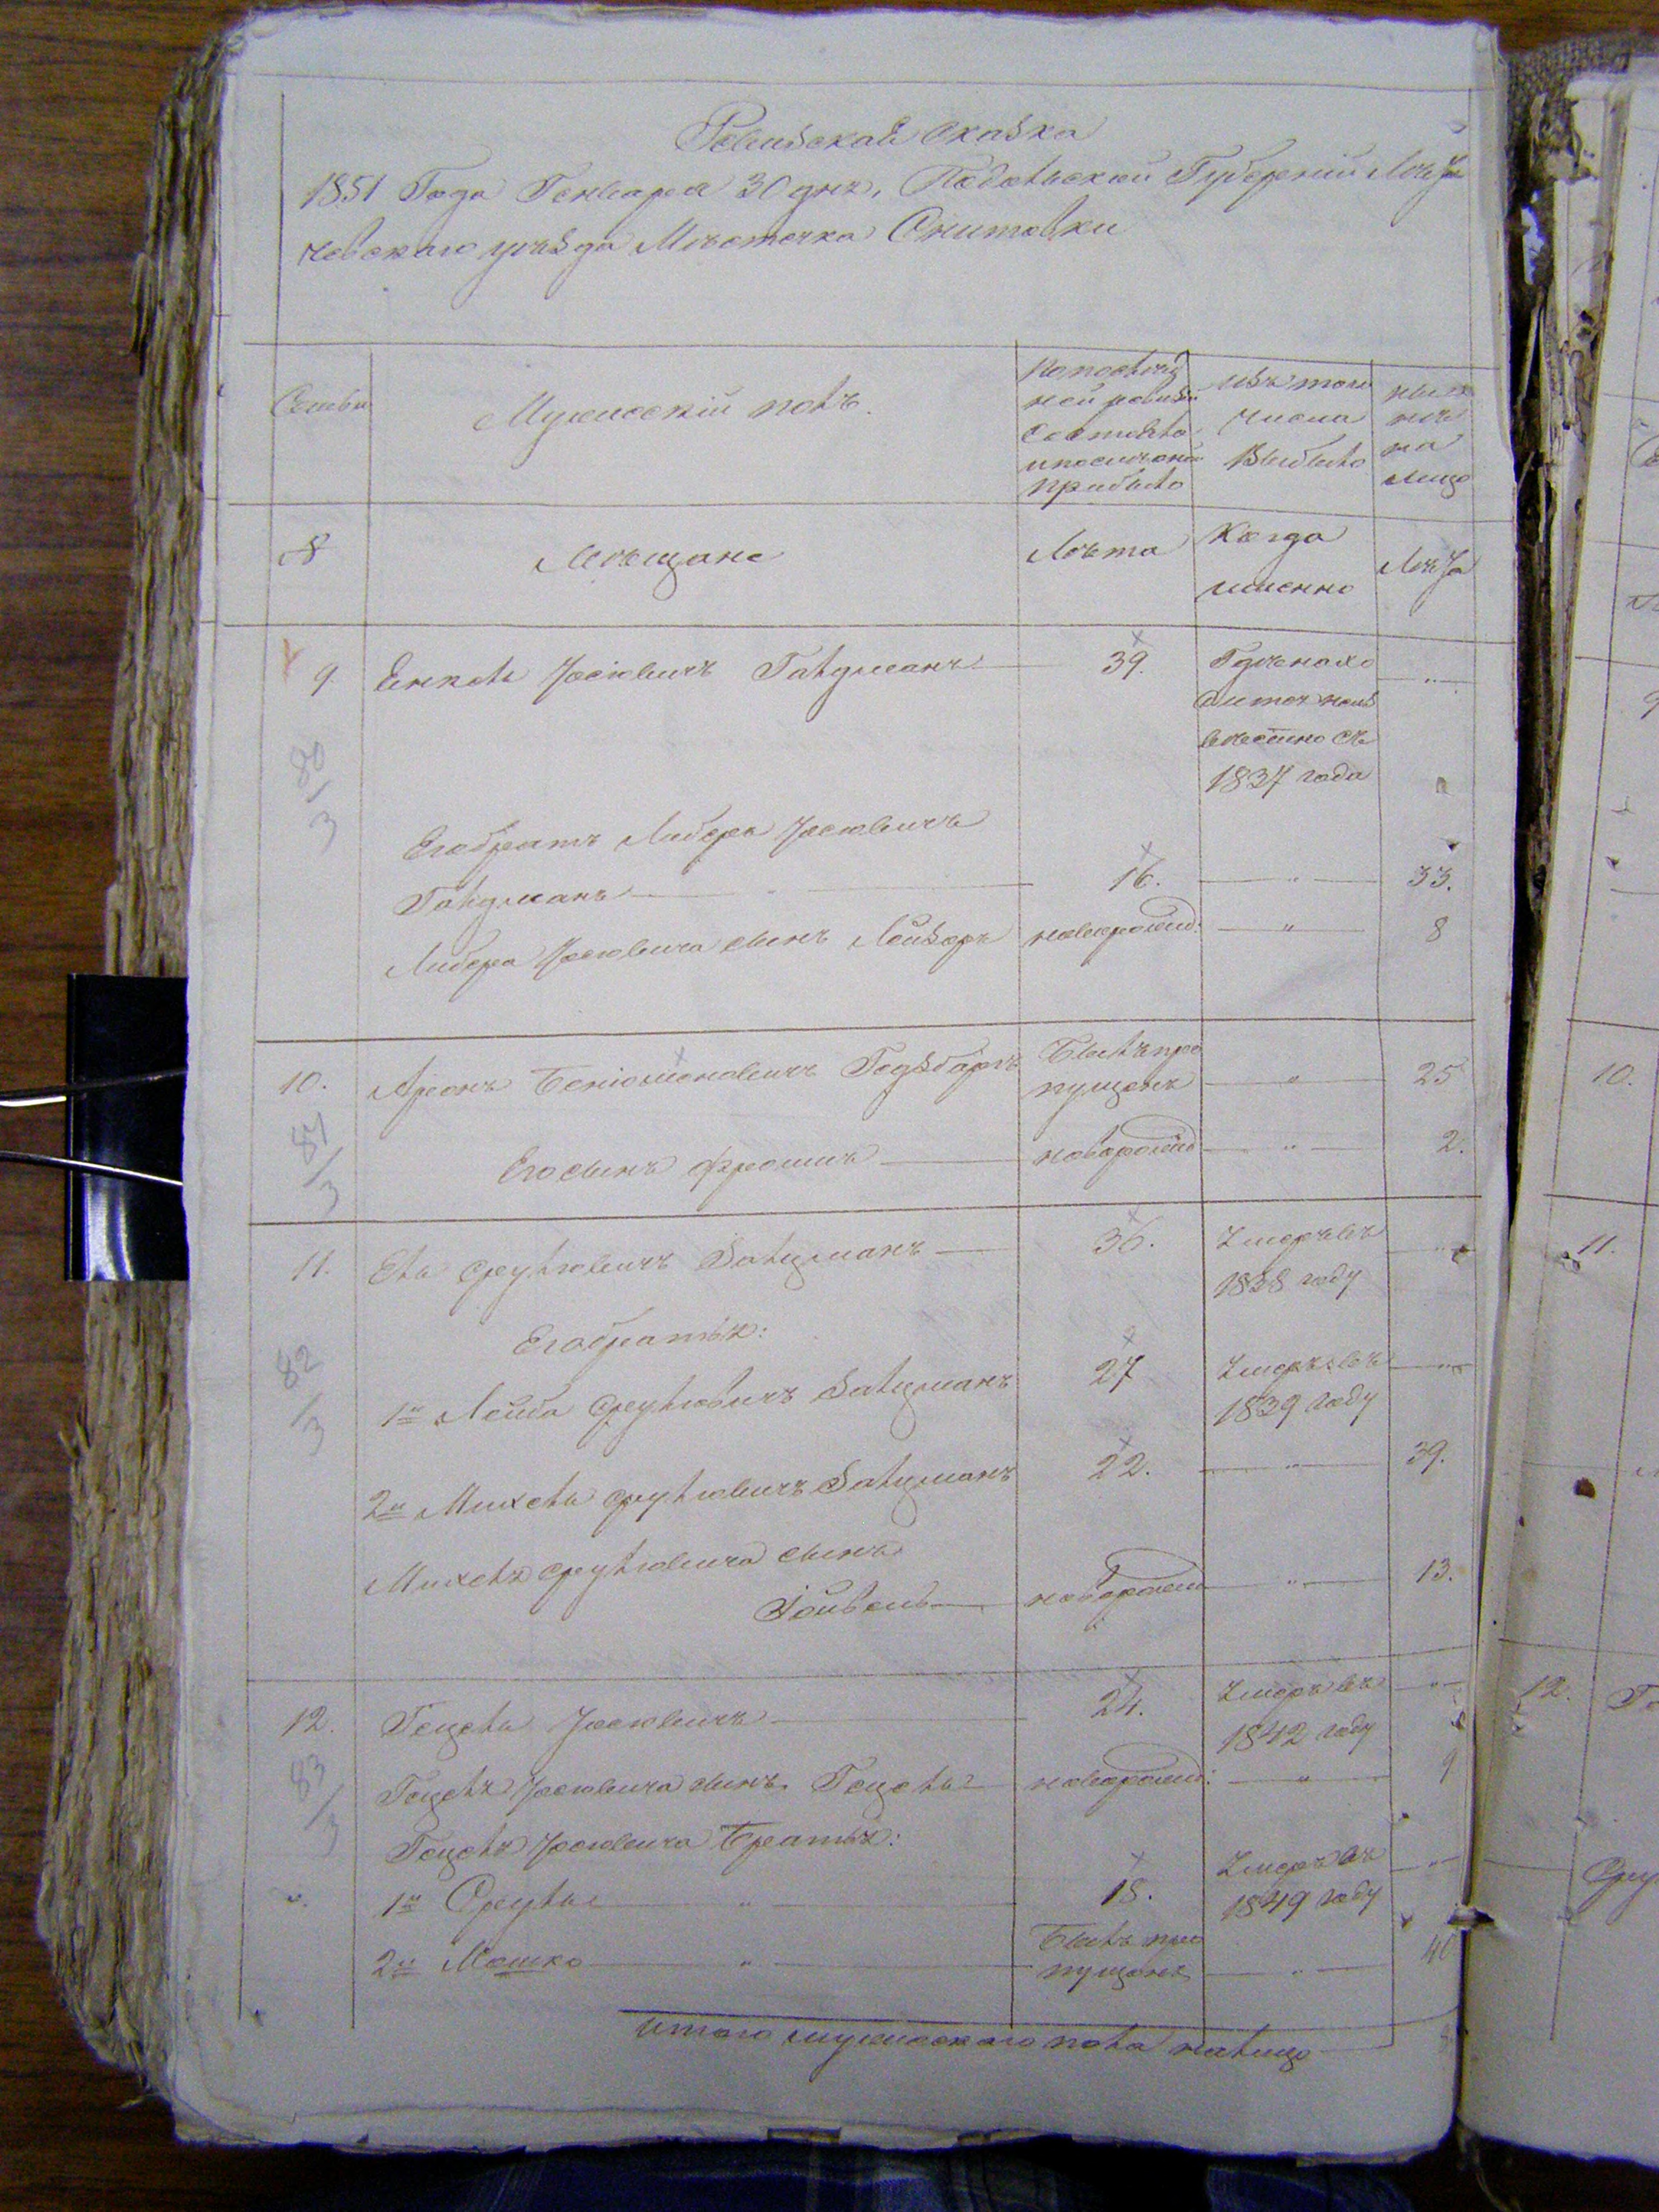 Ревизская сказка
1851 Года Генваря 30 дня, Подольской Губернии Лети
чевского уѣзда Мѣстечка Снитовки
Семьи
Мужеский полъ.
По послѣд
ней ревизіи
состояло
и после оной
прибыло
изъ того
числа
Выбыло
ныне
на
лицо
№
Мѣщане
Лѣта
Когда
именно
Лѣта
9
Енкель Іосювичъ Гольдманъ
39.
Гдѣ нахо
дится неиз
вѣстно съ
1837 года
80
3
Его братъ Либеръ Іосювичъ
Гольдманъ
16.
33.
Либера Іосювича сынъ Лейзеръ
новорожд:
8
10.
Аронъ Беніоминовичъ
Былъ про
пущенъ
25
81
3
Его сынъ Фроимъ
новорожд
2.
11.
Ель Сруліовичъ Зальцманъ
36.
Умеръ въ
1838 году
Его братья:
82
3
1й Лейба Сруліовичъ Зальцманъ
27
Умеръ въ
1839 году
2й Михель Сруліовичъ Зальцманъ
22.
39.
Михеля Сруліовича сынъ
новорожд
13.
12.
Гецель Іосювичъ
24.
Умеръ въ
1842 году
83
3
Гецеля Іосювича сынъ Гецель
новорожд:
9
Гецеля Іосювича Братья:
1й Сруль
18.
Умеръ въ
1849 году
2й Мошко
Былъ про
пущенъ
40
итого мужескаго пола на лицо
10.
11.
12.